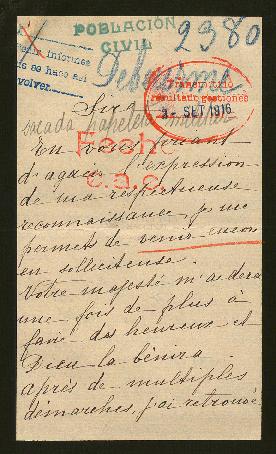 POBLACIÓN
CIVIL
2380
informes
se hace así
volver.
Delaisime
Transmitido
resultado gestiones
2- SET 1916
Sire
sacada papeleta
Fech
c.a.c.
En vous priant
d'agréer l'expression
de ma respectueuse
reconnaissance, je me
permets de venir encore
en solliciteuse.
Votre majesté m'aidera
une fois de plus à
faire des heureux et
Dieu la bénira
après de multiples
démarches, j'ai retrouvé